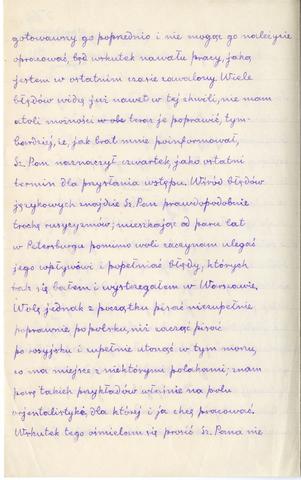 gotowawny go poprzednio i nie mogąc go należycie
opracować, będ wskutek nawału pracy, jaką
jestem w ostatnim czasie zawalony. Wiele
błędów widzę już nawet w tej chwili, nie mam
atoli możności teraz je poprawić, tym-
bardziej, że, jak brat mnie poinformował,
Sz. Pan naznaczył czwartek, jako ostatni
termin dla przysłania wstępu. Wśród błędów
językowych znajdzie Sz. Pan prawdopodobnie
trochę rusycyzmów; mieszkając od paru lat
w Petersburgu pomimo woli zaczynam ulegać
jego wpływowi i popełniać błędy, których
tak się bałem i wystrzegałem w Warszawie.
Wolę jednak z początku pisać niezupełnie
poprawnie po polsku, niż zacząć pisać
po rosyjsku i zupełnie utonąć w tym morzu,
co ma miejsce z niektórymi polakami; znam
parę takich przykładów właśnie na polu
orjentalistyki, dla której i ja chcę pracować.
Wskutek tego ośmielam się prosić Sz. Pana nie